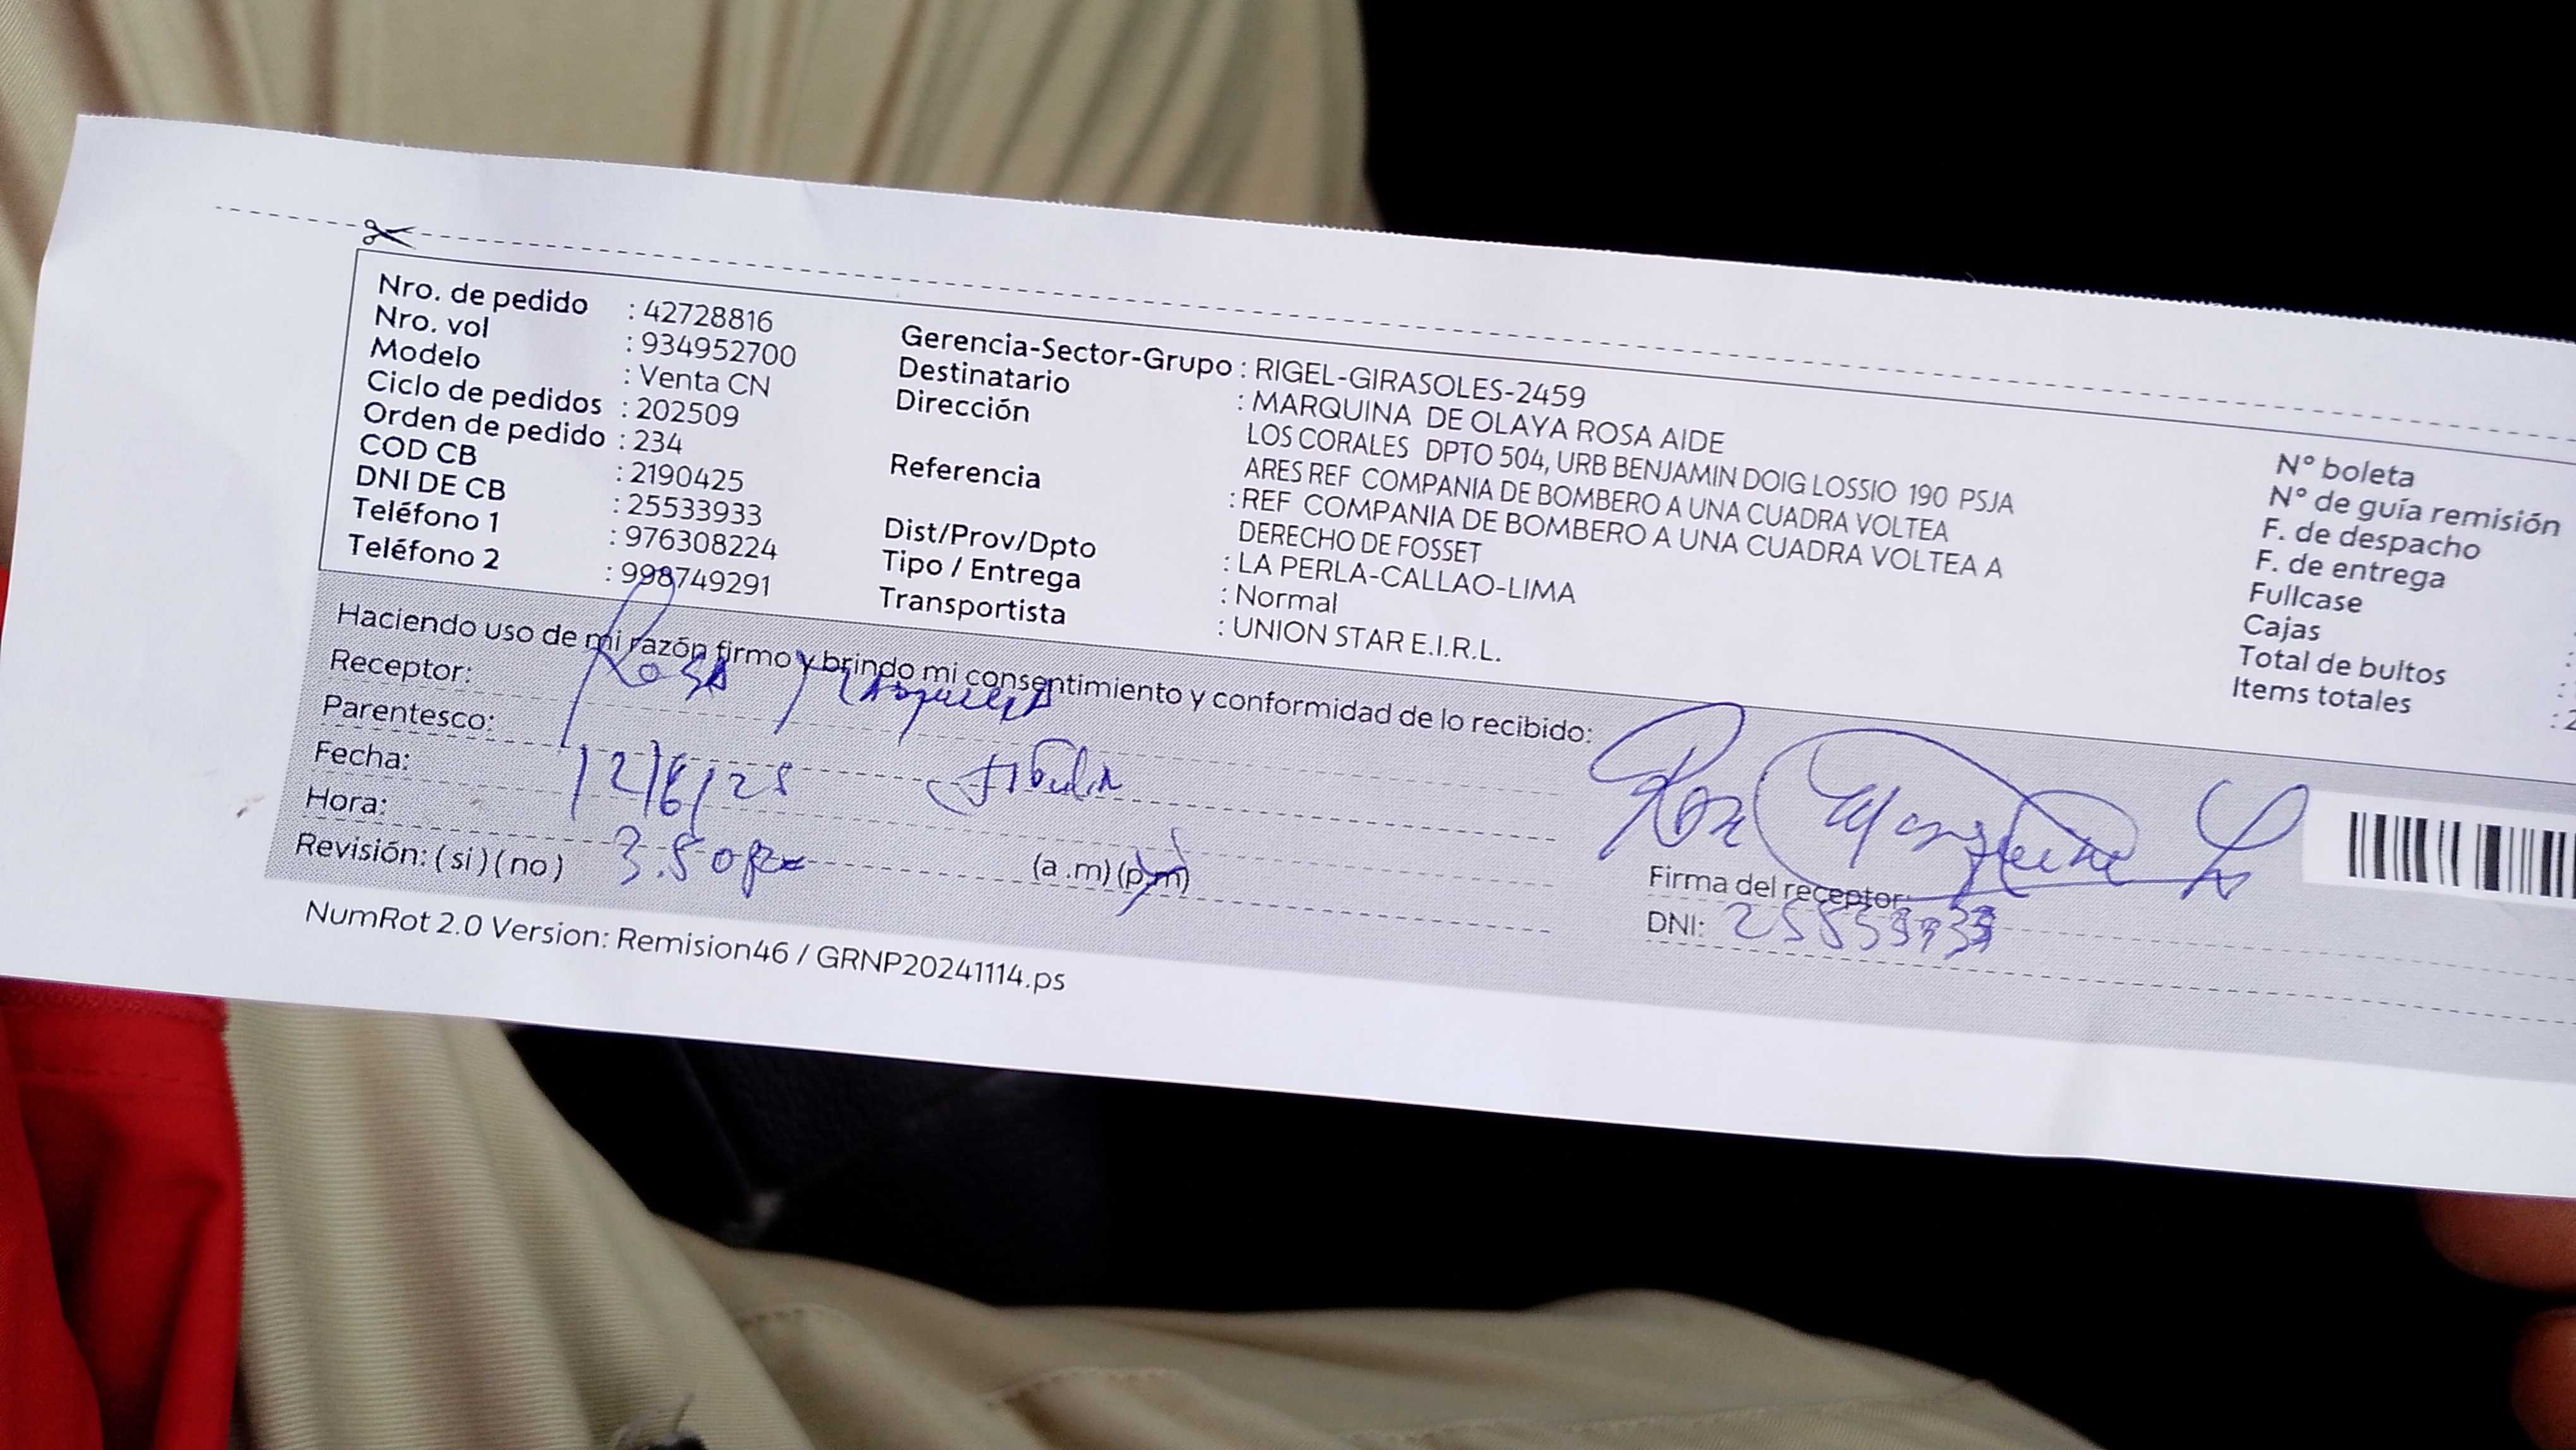 Nro. de pedido : 42728816
Nro. vol : 934952700
Modelo : Venta CN
Ciclo de pedidos : 202509
Orden de pedido : 234
COD CB : 2190425
DNI DE CB : 25533933
Teléfono 1 : 976308224
Teléfono 2 : 998749291
Gerencia-Sector-Grupo : RIGEL-GIRASOLES-2459
Destinatario : MARQUINA DE OLAYA ROSA AIDE
Dirección LOS CORALES DPTO 504, URB BENJAMIN DOIG LOSSIO 190 PSJA
ARES REF COMPANIA DE BOMBERO A UNA CUADRA VOLTEA
Referencia : REF COMPANIA DE BOMBERO A UNA CUADRA VOLTEA A
DERECHO DE FOSSET
Dist/Prov/Dpto : LA PERLA-CALLAO-LIMA
Tipo / Entrega : Normal
Transportista : UNION STAR E.I.R.L.
N° boleta
N° de guía remisión
F. de despacho
F. de entrega
Fullcase
Cajas :
Total de bultos :
Items totales : 2
Haciendo uso de mi razón firmo y brindo mi consentimiento y conformidad de lo recibido:
Receptor: Rosa Marquina
Parentesco:
Fecha: 12/6/25
Hora: 3.50 pm (a .m) (p.m)
Revisión: ( si ) ( no )
Firma del receptor:
DNI:
NumRot 2.0 Version: Remision46 / GRNP20241114.ps